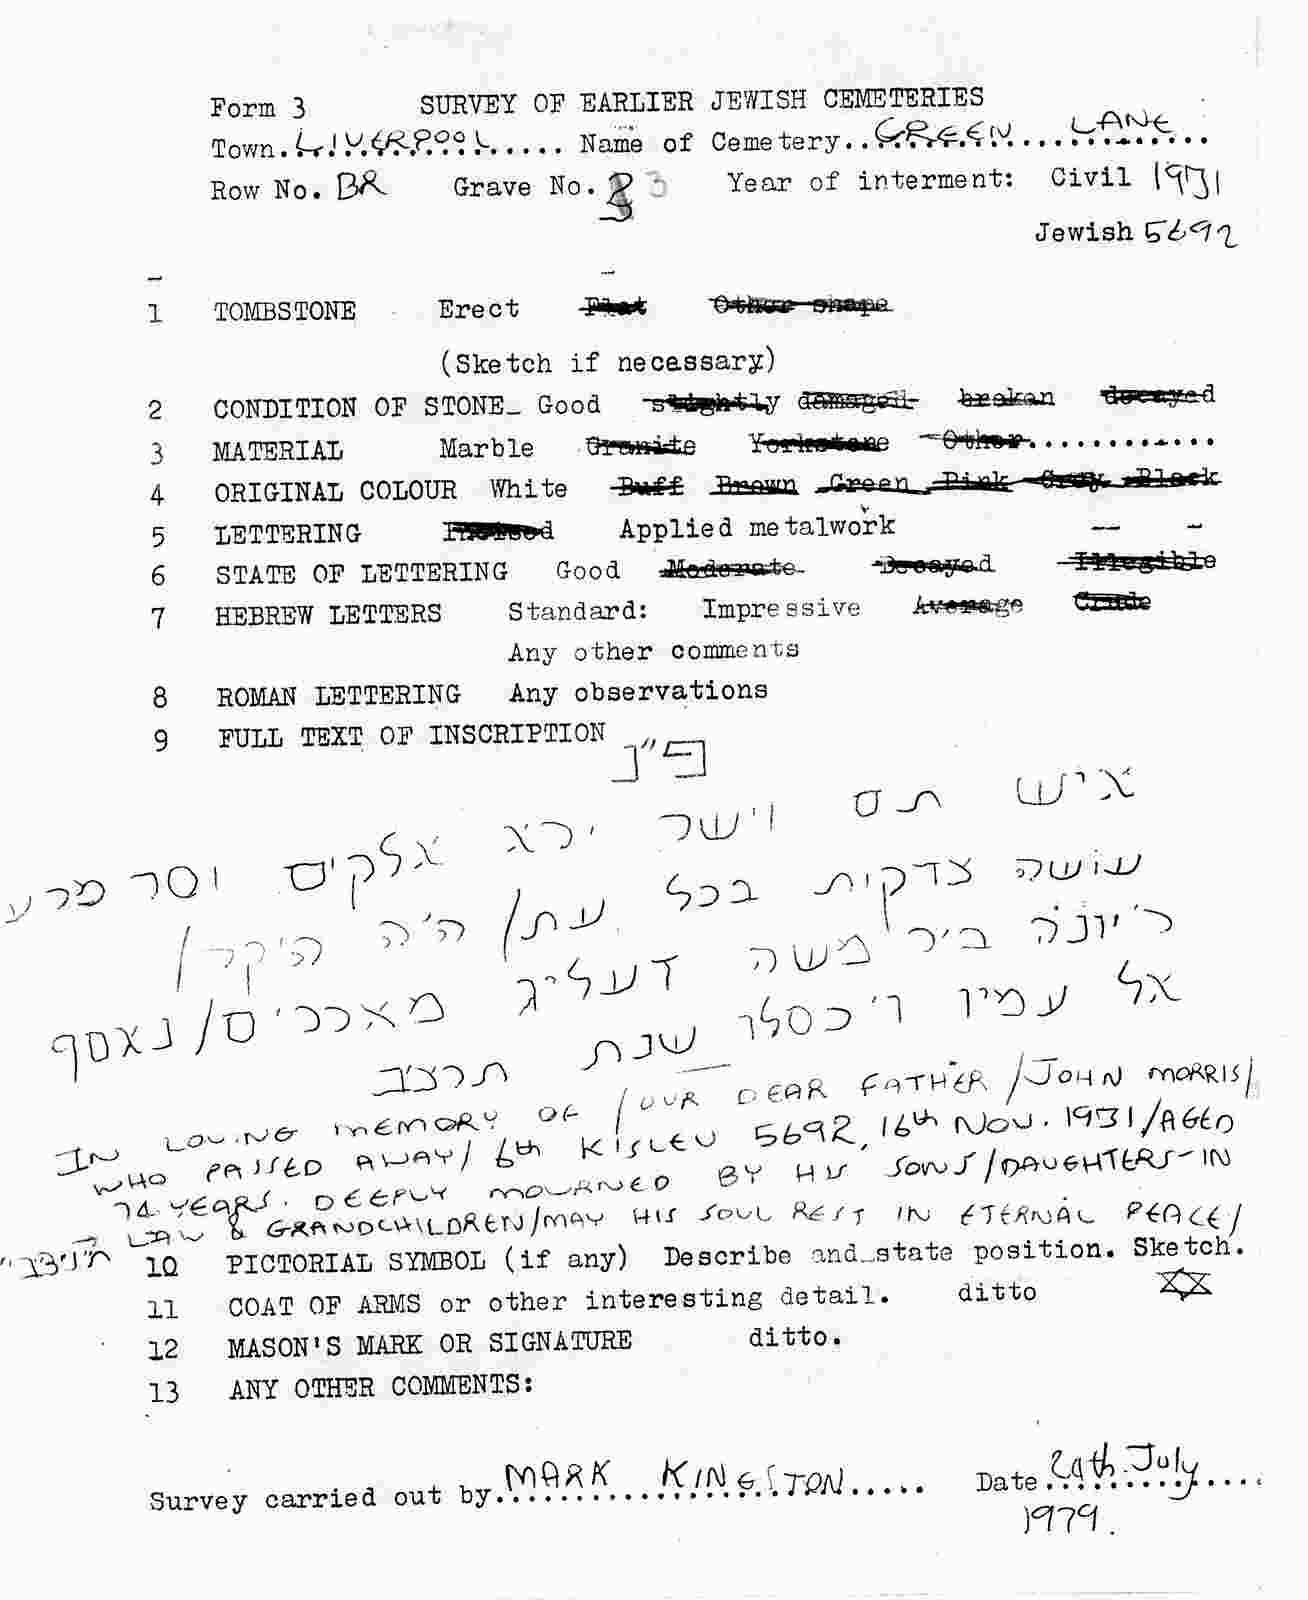 Form 3 SURVEY OF EARLIER JEWISH CEMETERIES
Town. LIVERPOOL ..... Name of Cemetery.. GREEN LANE
Row No. BR Grave No. 3 3 Year of interment: Civil 1931
Jewish 5692
1 TOMBSTONE Erect Flat Other shape
(Sketch if necessary)
2 CONDITION OF STONE_ Good slightly damaged broken decayed
3 MATERIAL Marble Granite Yorkstone Other............
4 ORIGINAL COLOUR White Buff Brown Green Pink Grey Black
5 LETTERING Incised Applied metalwork
6 STATE OF LETTERING Good Moderate Decayed Illegible
7 HEBREW LETTERS Standard: Impressive Average Crude
Any other comments
8 ROMAN LETTERING Any observations
9 FULL TEXT OF INSCRIPTION
פ"נ
איש תם וישר ירא אלקים וסר מרע
עושה צדקית בכל עת/ ה'ה היקר/
ר'יונה ב'ר משה דעליג מאררים/נאסף
אל עמיו ו'כסלו שנת תרצ'ב
IN LOVING MEMORY OF /OUR DEAR FATHER /JOHN MORRIS/
WHO PASSED AWAY/ 6th KISLEV 5692, 16th NOV. 1931/AGED
74 YEARS. DEEPLY MOURNED BY HIS SONS/DAUGHTERS-IN
→ LAW & GRANDCHILDREN/MAY HIS SOUL REST IN ETERNAL PEACE/
ת'נ'צ'ב'ה
10 PICTORIAL SYMBOL (if any) Describe and state position. Sketch.
11 COAT OF ARMS or other interesting detail. ditto
12 MASON'S MARK OR SIGNATURE ditto.
13 ANY OTHER COMMENTS:
Survey carried out by. MARK KINGSTON ..... Date 29th July
1979.